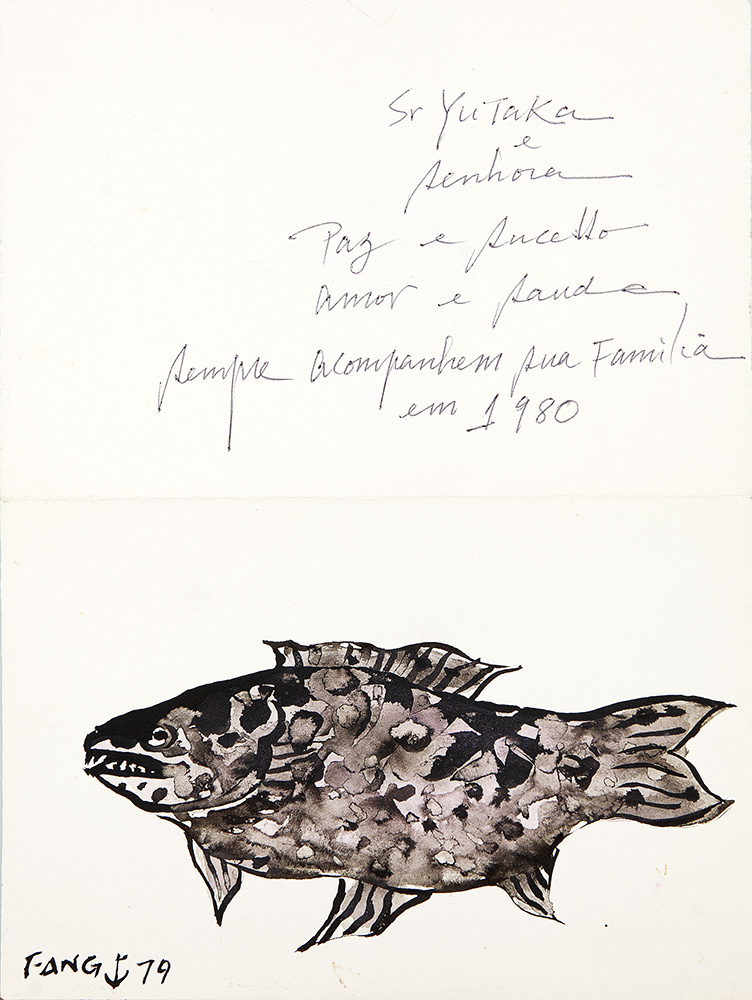 Sr Yutaka
e
senhora
Paz e sucesso
amor e saude
sempre acompanhem sua Familia
em 1980
FANG 79